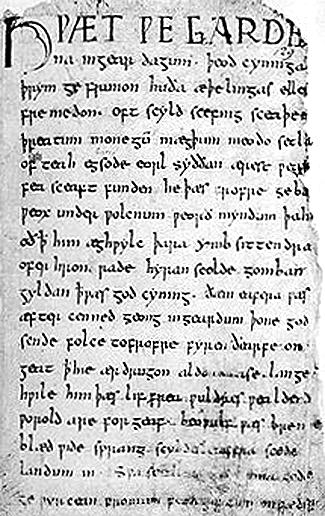 HǷÆT ǷE GARDE
na ingear dagum. þeod cyninga
þrym ge frunon huða æþelingas elle[n]
fre medon. oft scyld scefing sceaþe[na]
þreatum monegū mægþum meodo setla
of teah egsode eorl syððan ærest ƿear[ð]
fea sceaft funden he þæs frofre geba[d]
ƿeox under ƿolcnum ƿeorð myndum þah
oð þ him æghƿylc þara ymb sittendra
ofer hron rade hyran scolde gomban
gyldan þæs god cyning. ðæm eafera ƿæs
æfter cenned geong ingeardum þone god
sende folce tofrofre fyren ðearfe on
geat þhie ær drugon aldor ase. lange
hƿile him þæs lif frea ƿuldres ƿealdend
ƿorold are for geaf. beoƿulf ƿæs breme
blæd ƿide sprang scyldes eafera scede
landum in. Sƿa sceal guma gode
ge ƿyrcean fromum feoh giftum